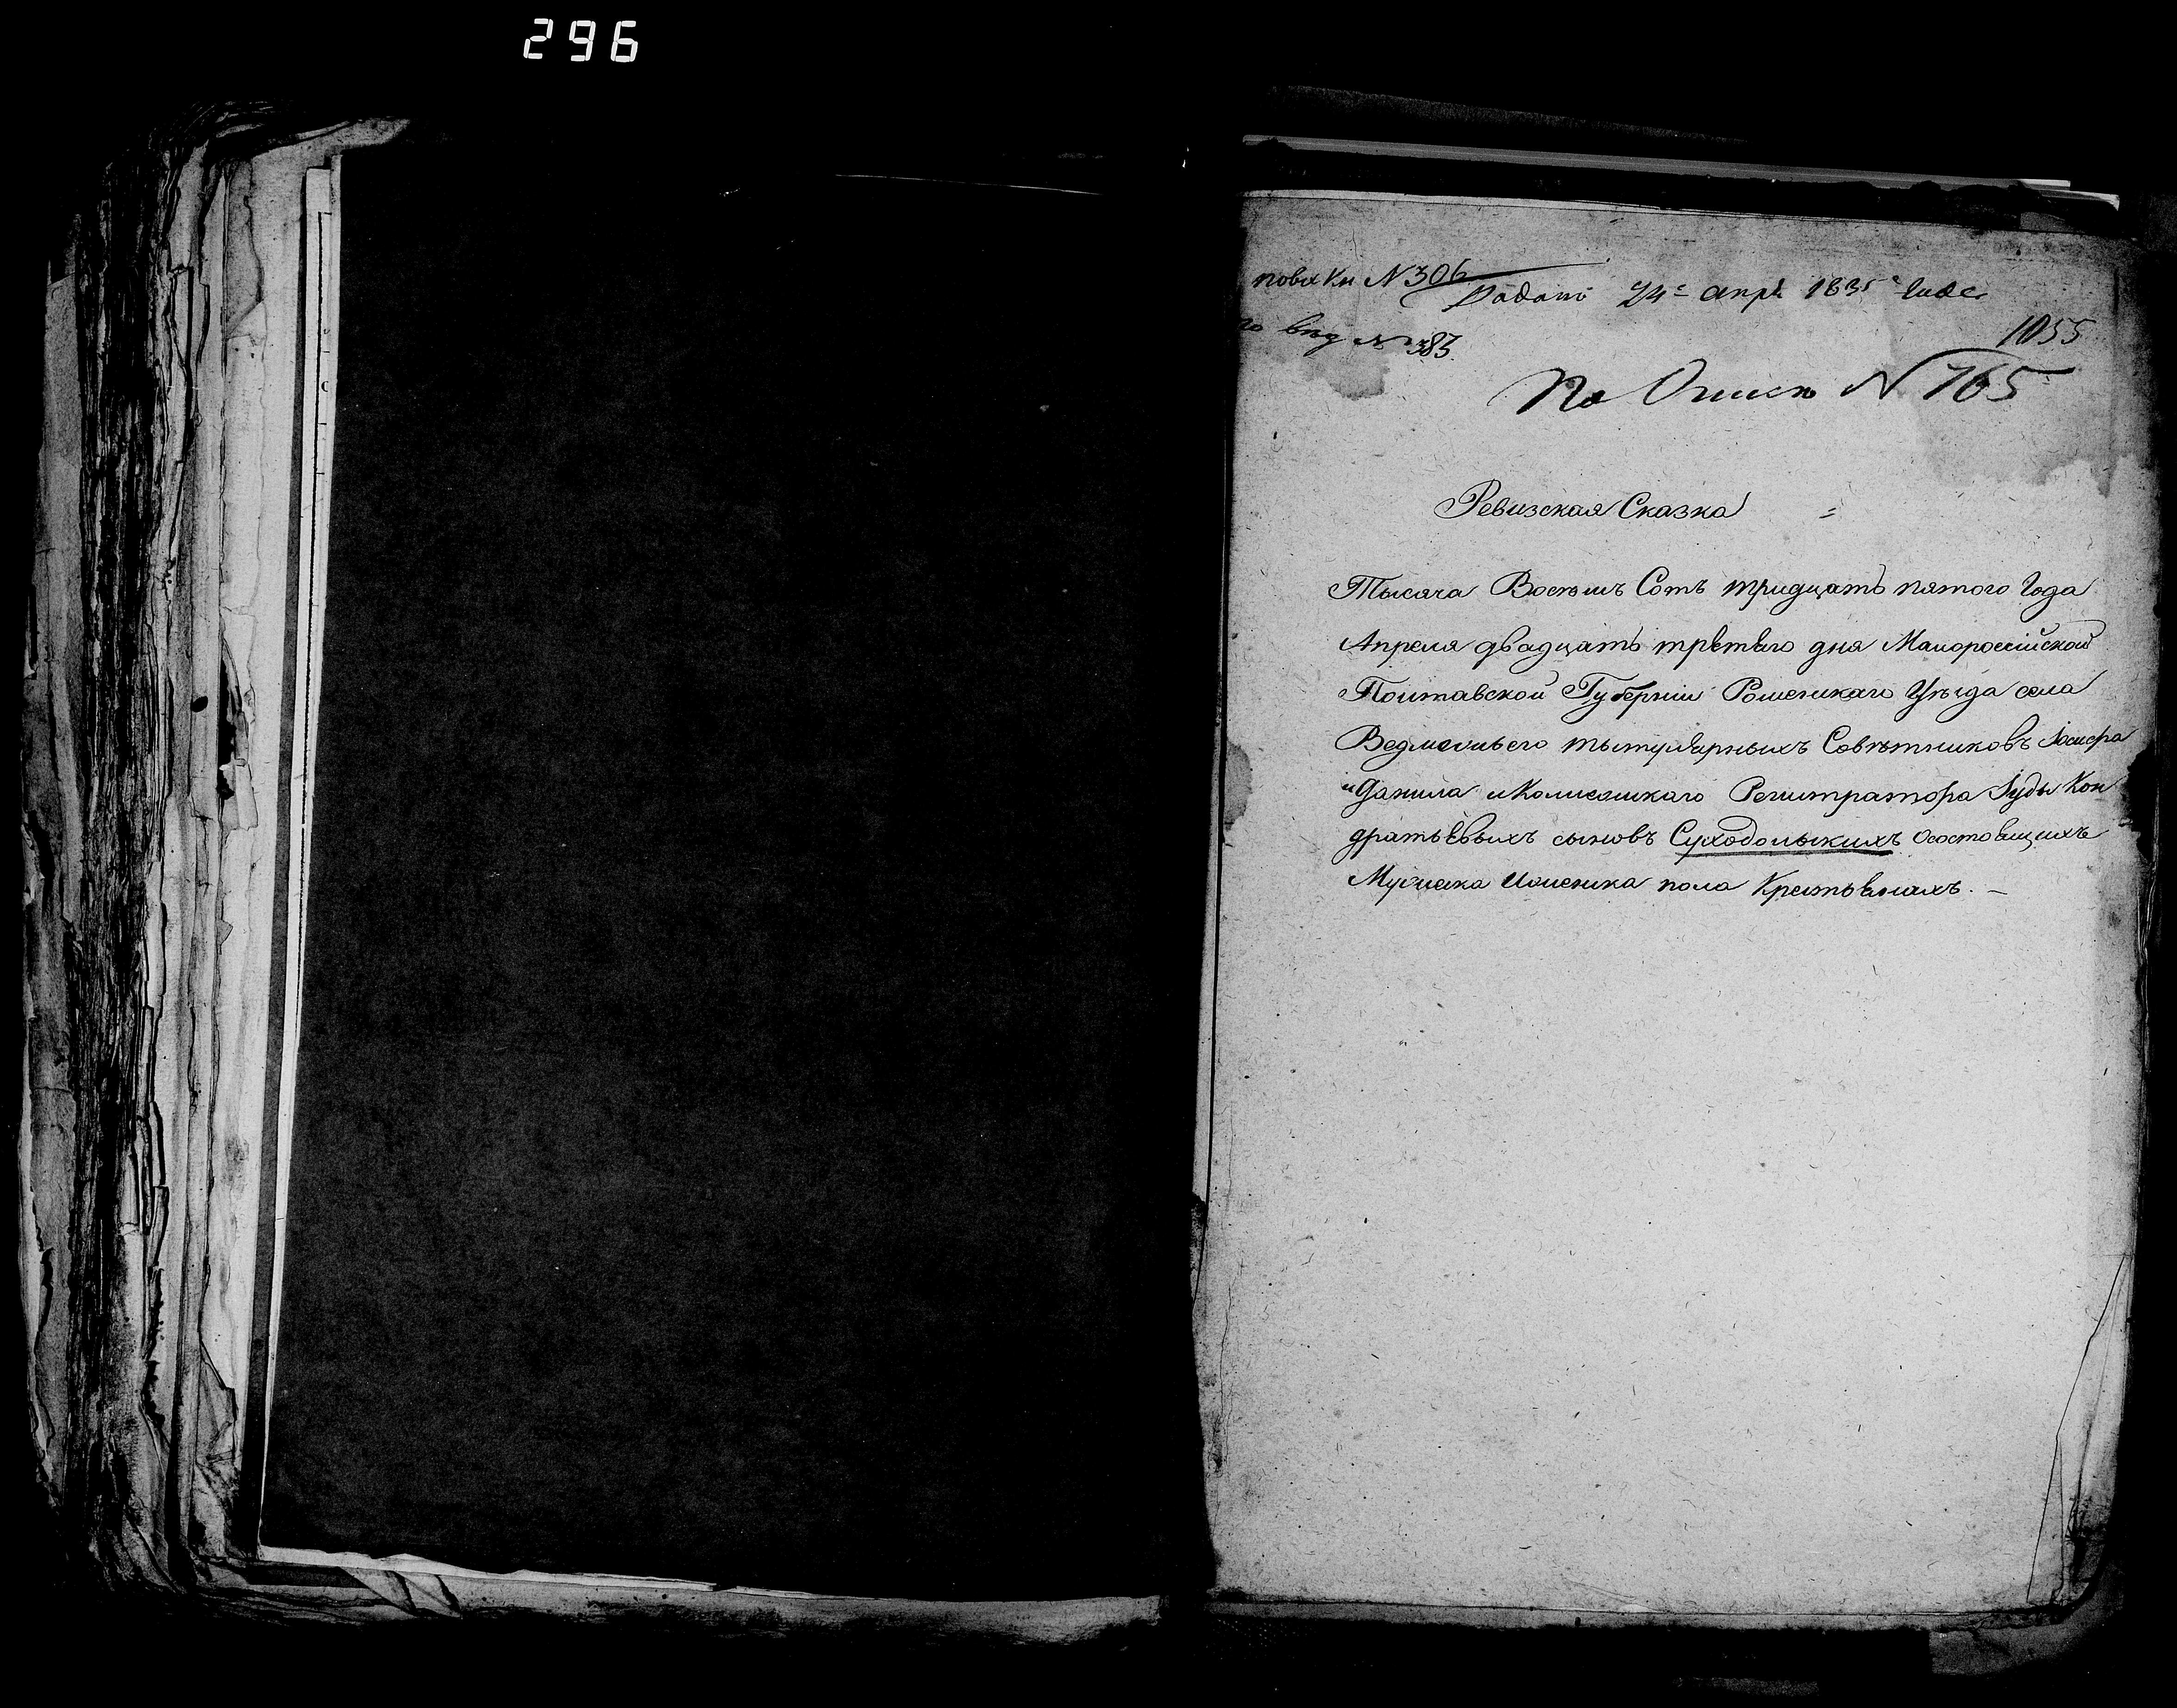 296
№ 306
Подано 24 апрѣ 1835 года
№ 383
1055
По Описи № 765
Ревизская Сказка
Тысяча Восемь Сотъ тридцать пятого Года
Апреля двадцать третьяго дня Малороссійской
Полтавской Губерніи Роменскаго Уѣзда села
Ведмежьего титулярныхъ Совѣтниковъ Іосифа
и Данила и Колежскаго Регистратора Іуды Кон
дратьевыхъ сыновъ Суходольскихъ осостоящихъ
Мужеска иженска пола Крестьянахъ. —